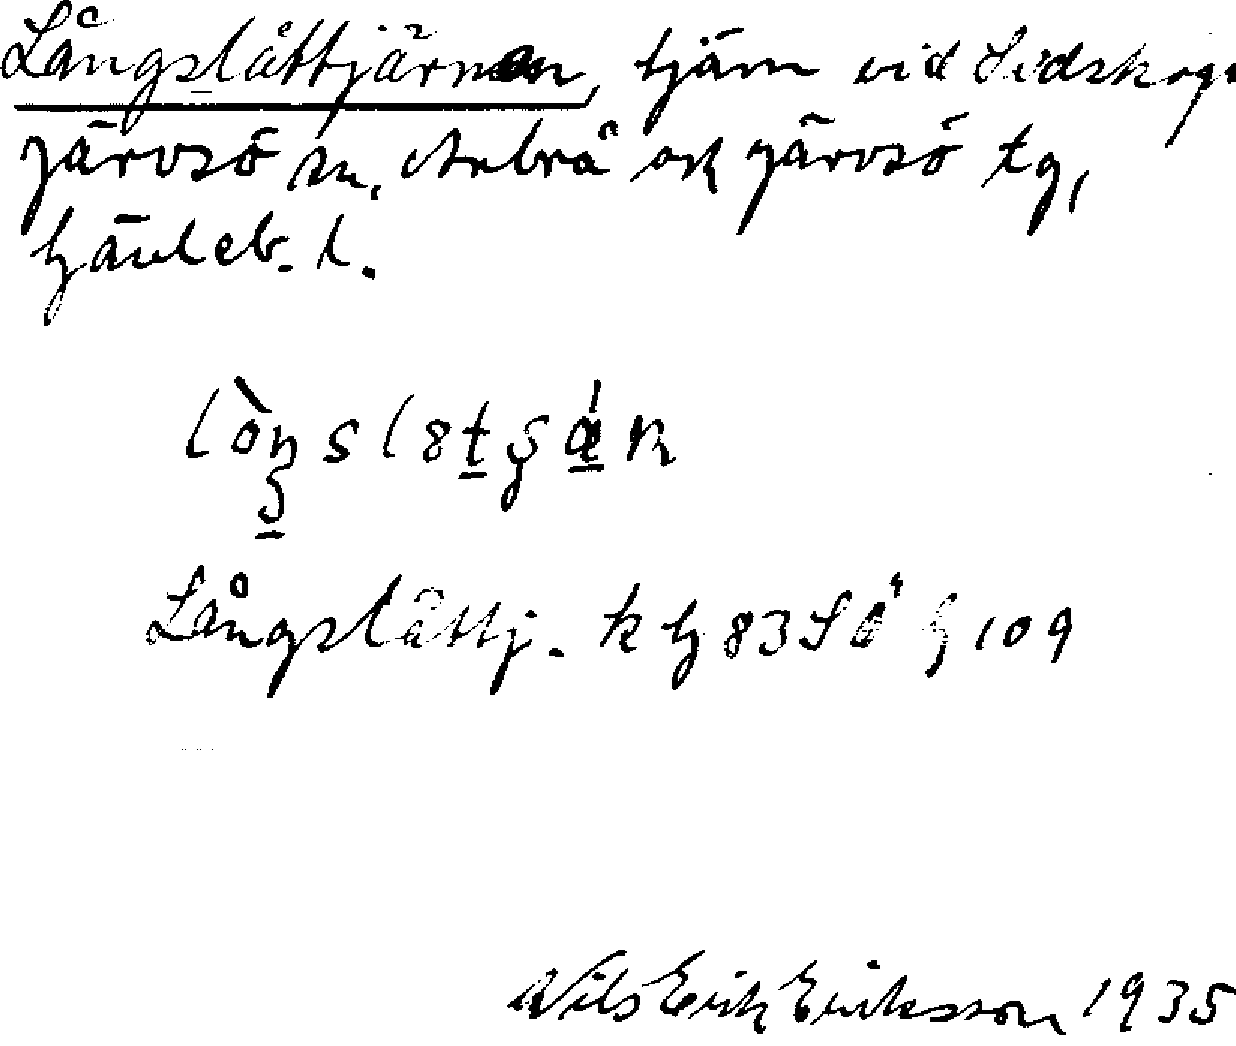 Långslåttjärnen, tjärn vid Lidskog,
Järvsö sn, Arbrå och Järvsö tg,
Gävleb. l.
Långslåttj. k H 83 SÖ H 109
Nils Erik Eriksson 1935